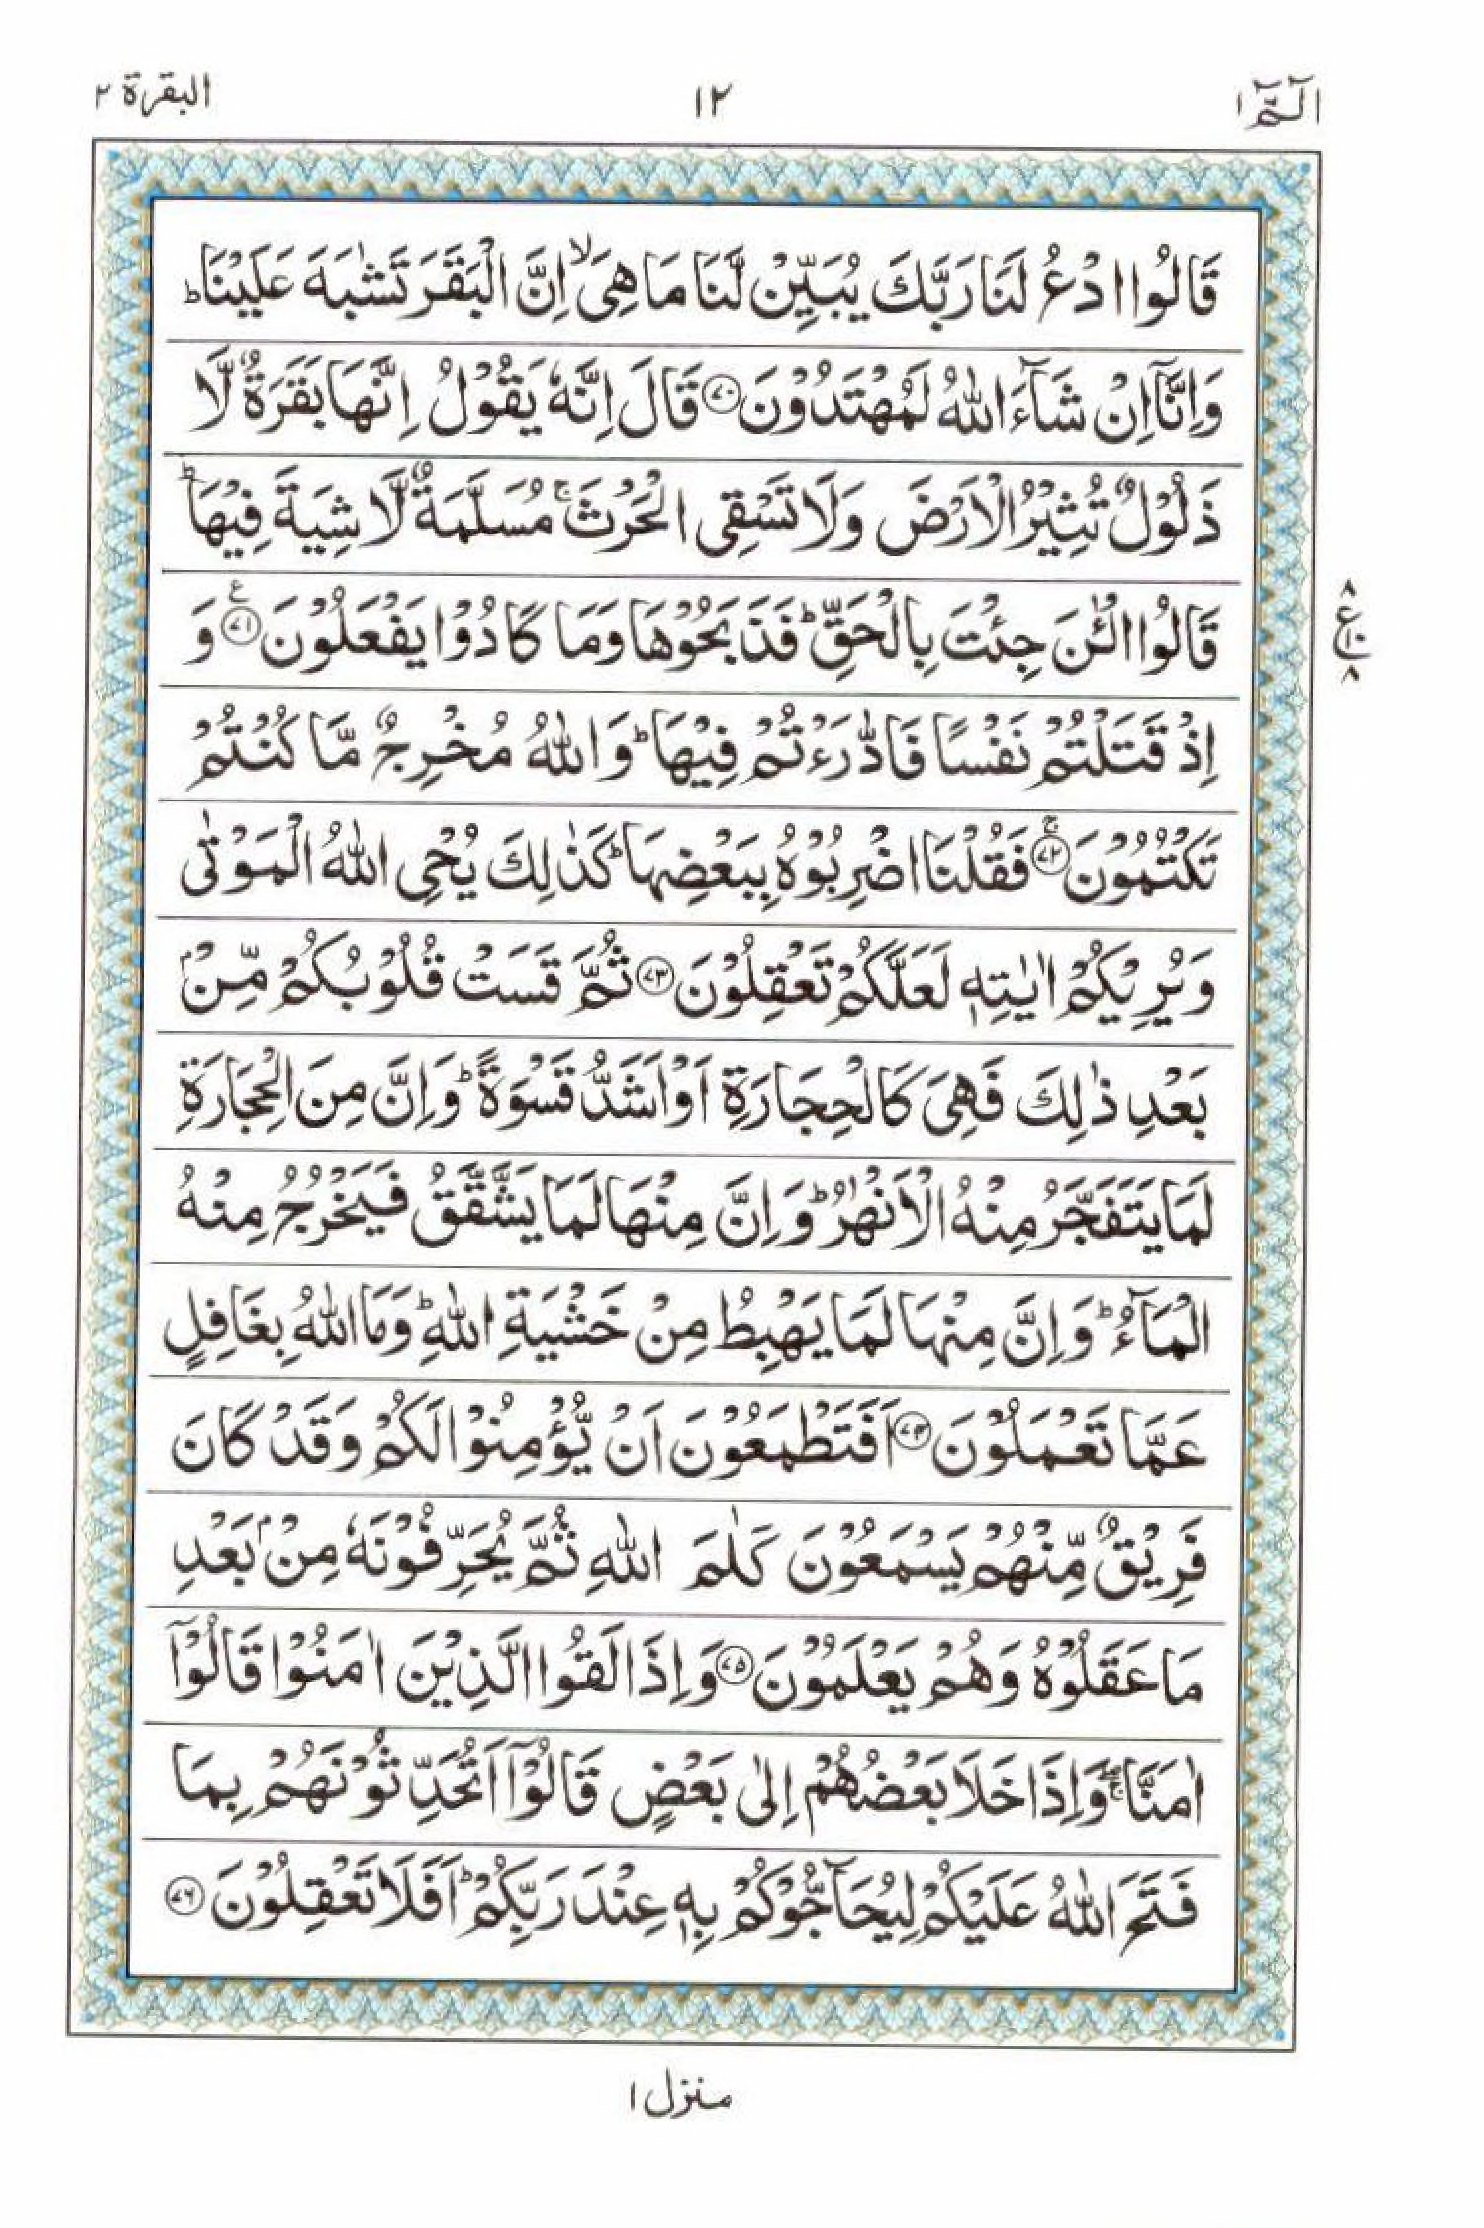 الٓمّٓ ١
١٢
البقرة ٢
قَالُوا ادْعُ لَنَا رَبَّكَ يُبَيِّنْ لَّنَا مَا هِىَ ۙ اِنَّ الْبَقَرَ تَشٰبَهَ عَلَيْنَا ؕ
وَاِنَّاۤ اِنْ شَآءَ اللّٰهُ لَمُهْتَدُوْنَ ﴿٧٠﴾ قَالَ اِنَّهٗ يَقُوْلُ اِنَّهَا بَقَرَةٌ لَّا
ذَلُوْلٌ تُثِيْرُ الْاَرْضَ وَلَا تَسْقِى الْحَرْثَ ۚ مُسَلَّمَةٌ لَّا شِيَةَ فِيْهَا ؕ
قَالُوا الْـٰٔنَ جِئْتَ بِالْحَقِّ ؕ فَذَبَحُوْهَا وَمَا كَادُوْا يَفْعَلُوْنَ ﴿٧١﴾ ع وَ
٨
ع ١٠
٨
اِذْ قَتَلْتُمْ نَفْسًا فَادّٰرَءْتُمْ فِيْهَا ؕ وَاللّٰهُ مُخْرِجٌ مَّا كُنْتُمْ
تَكْتُمُوْنَ ۚ ﴿٧٢﴾ فَقُلْنَا اضْرِبُوْهُ بِبَعْضِهَا ؕ كَذٰلِكَ يُحْىِ اللّٰهُ الْمَوْتٰى
وَيُرِيْكُمْ اٰيٰتِهٖ لَعَلَّكُمْ تَعْقِلُوْنَ ﴿٧٣﴾ ثُمَّ قَسَتْ قُلُوْبُكُمْ مِّنْۢ
بَعْدِ ذٰلِكَ فَهِىَ كَالْحِجَارَةِ اَوْ اَشَدُّ قَسْوَةً ؕ وَاِنَّ مِنَ الْحِجَارَةِ
لَمَا يَتَفَجَّرُ مِنْهُ الْاَنْهٰرُ ؕ وَاِنَّ مِنْهَا لَمَا يَشَّقَّقُ فَيَخْرُجُ مِنْهُ
الْمَآءُ ؕ وَاِنَّ مِنْهَا لَمَا يَهْبِطُ مِنْ خَشْيَةِ اللّٰهِ ؕ وَمَا اللّٰهُ بِغَافِلٍ
عَمَّا تَعْمَلُوْنَ ﴿٧٤﴾ اَفَتَطْمَعُوْنَ اَنْ يُّؤْمِنُوْا لَكُمْ وَقَدْ كَانَ
فَرِيْقٌ مِّنْهُمْ يَسْمَعُوْنَ كَلٰمَ اللّٰهِ ثُمَّ يُحَرِّفُوْنَهٗ مِنْۢ بَعْدِ
مَا عَقَلُوْهُ وَهُمْ يَعْلَمُوْنَ ﴿٧٥﴾ وَاِذَا لَقُوا الَّذِيْنَ اٰمَنُوْا قَالُوْۤا
اٰمَنَّا ۖۚ وَاِذَا خَلَا بَعْضُهُمْ اِلٰى بَعْضٍ قَالُوْۤا اَتُحَدِّثُوْنَهُمْ بِمَا
فَتَحَ اللّٰهُ عَلَيْكُمْ لِيُحَآجُّوْكُمْ بِهٖ عِنْدَ رَبِّكُمْ ؕ اَفَلَا تَعْقِلُوْنَ ﴿٧٦﴾
منزل ١